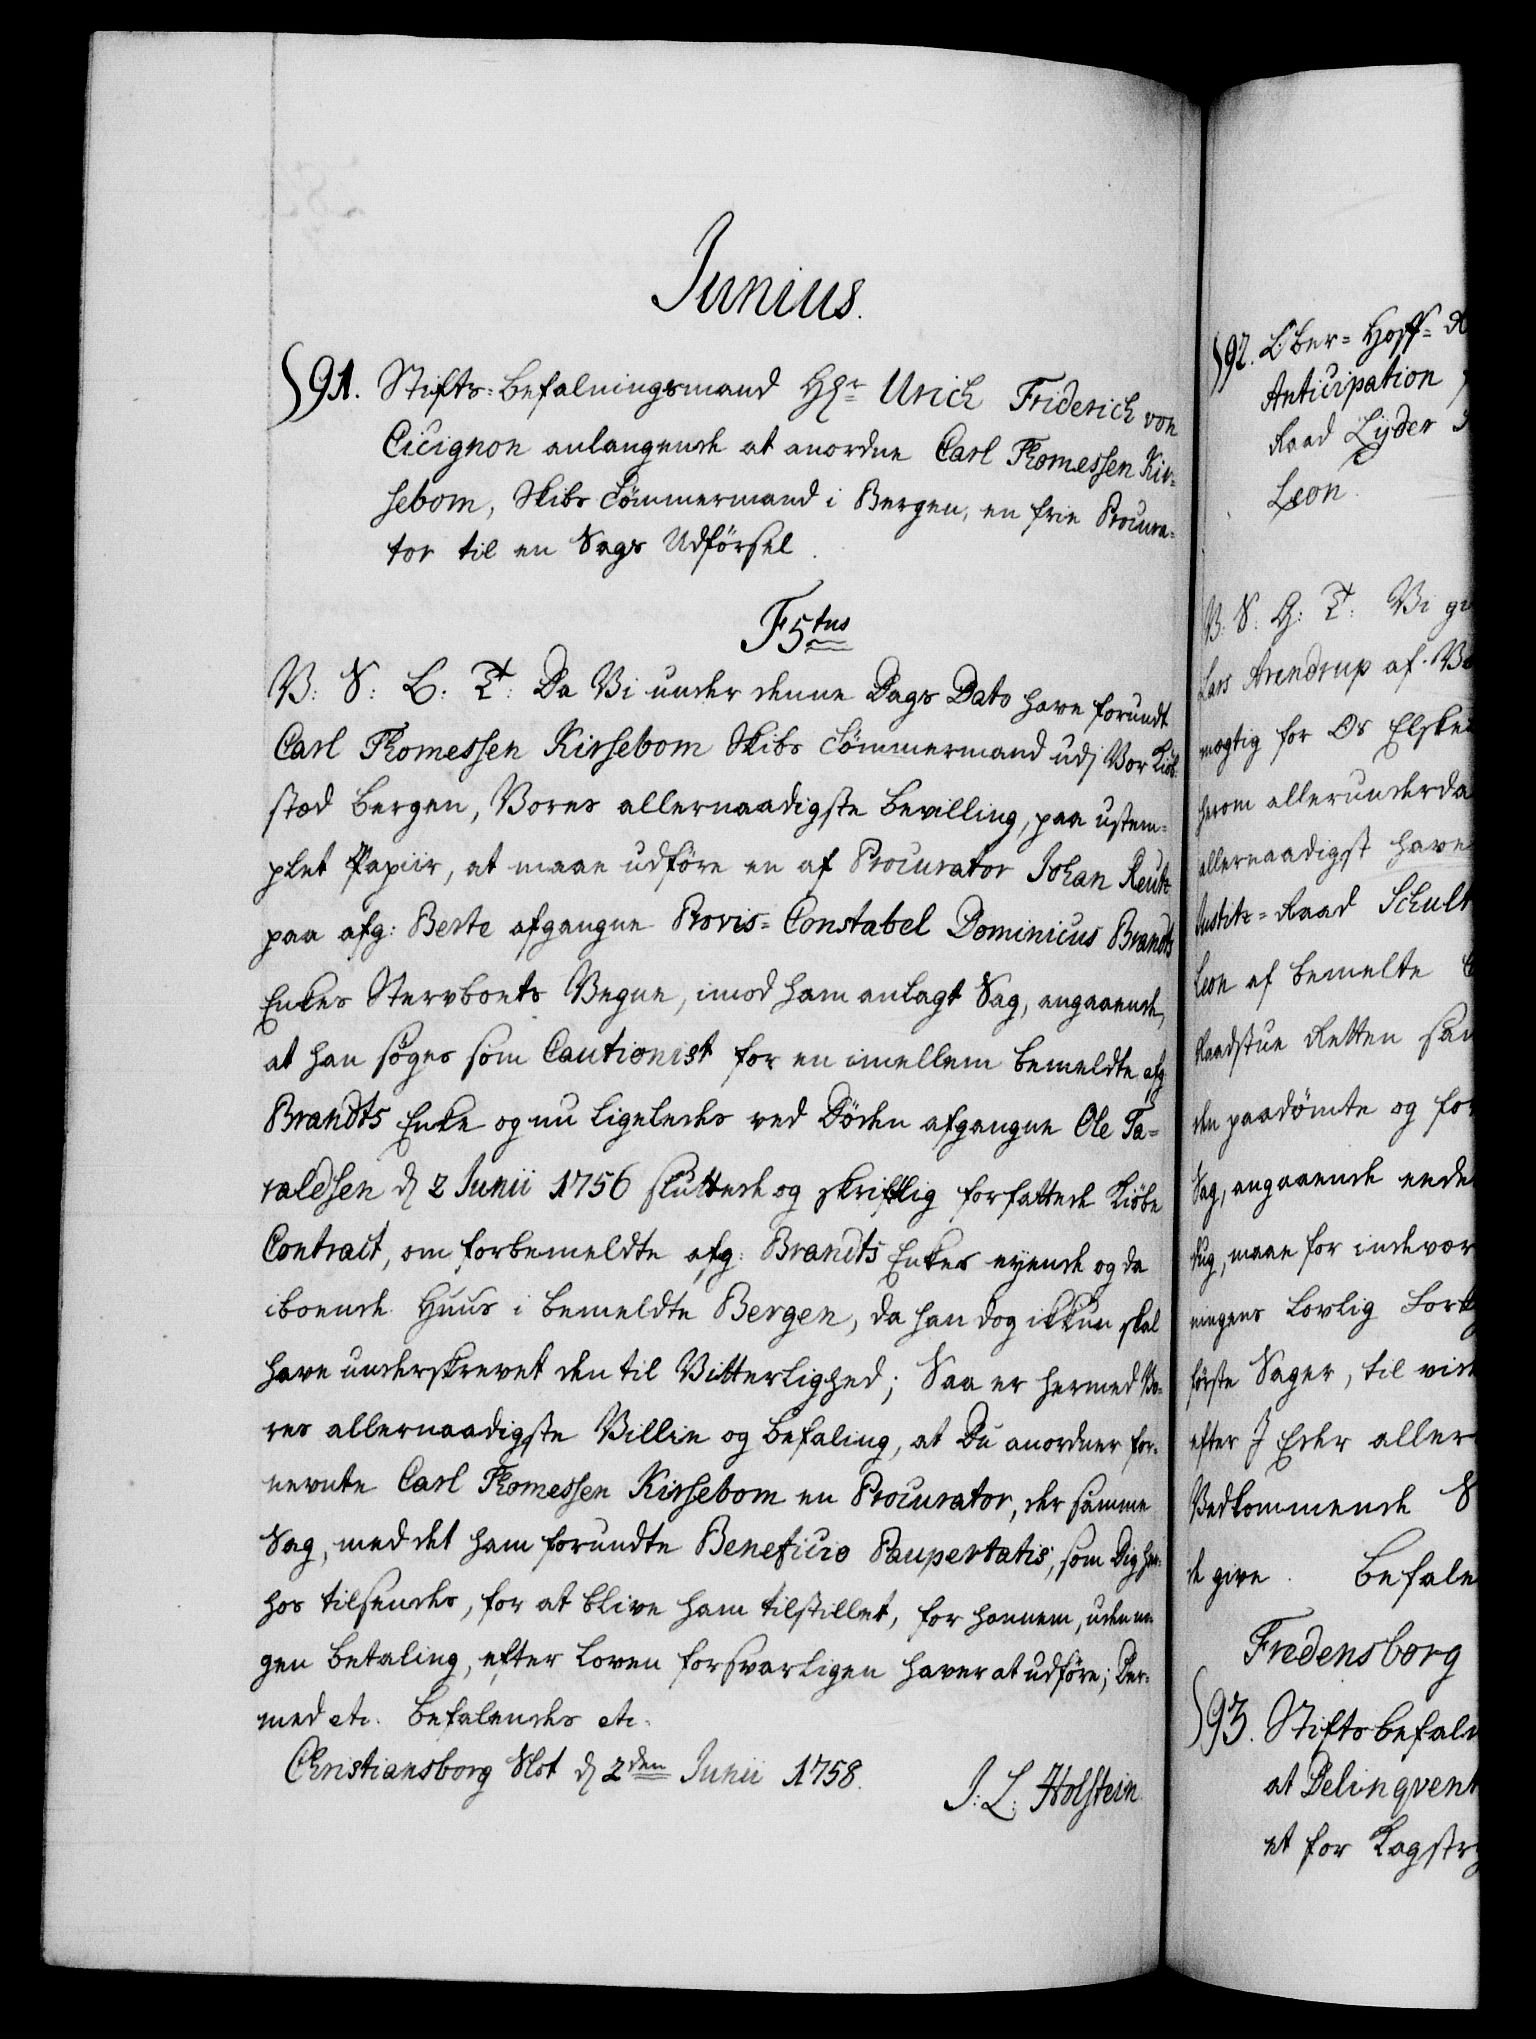 Junius.
§91. Stifts-Befalningsmand Hr. Urich Friderich von
Cicignon anlangende at anordne Carl Thomessen Kir-
sebom, Skibs Tömmermand i Bergen, en frie Procura-
tor til en Sags Udförsel.
F5tus
V: S: G: T: Da Vi under denne Dags Dato have forundt
Carl Thomessen Kirsebom Skibs Tömmermand udj Vor Kiöb-
stæd Bergen, Vores allernaadigste Bevilling, paa ustem-
plet Papiir, at maae udföre en af Procurator Johan Reutz
paa afg: Berte afgangne Provis-Constabel Dominicus Brandts
Enkes Stervboets Vegne, imod ham anlagt Sag, angaaende,
at han söges som Cautionist for en imellem bemeldte afg
Brandts Enke og nu ligeledes ved Döden afgangne Ole Ta-
raldsen d 2 Junii 1756 sluttede og skriftlig forfattede Kiöbe
Contract, om forbemeldte afg: Brandts Enkes eyende og da
iboende Huus i bemeldte Bergen, da han dog ikkun skal
have underskrevet den til Vitterlighed; Saa er hermed Vo-
res allernaadigste Villie og Befaling, at Du anordner for-
nevnte Carl Thomessen Kirsebom en Procurator, der samme
Sag, med det ham forundte Beneficio Paupertatis, som Dig her-
hos tilsendes, for at blive ham tilstillet, for hannem, uden no-
gen Betaling, efter Loven forsvarligen haver at udföre; Der-
med etc. Befalendes etc.
Christiansborg Slot d 2den Junii 1758.
J: L: Holstein
§92. Ober-Hoff-
Anticipation
Raad Lyder
Leon.
V. S. G: T: Vi
Lars Arendrup af
mægtig for Os Elske
herom allerunderda
allernaadigst have
Justitz-Raad Schult
Leon af bemelte
Raadstue Retten sam
den paadömte og for
Sag, angaaende ende
dug, maae for indevær
ningens lovlig
förste Sager, til vid
efter I Eder aller
Vedkommende
de give. Befale
Fredensborg
§93. Stiftsbefal
at Delinqvent
et for Kagstry